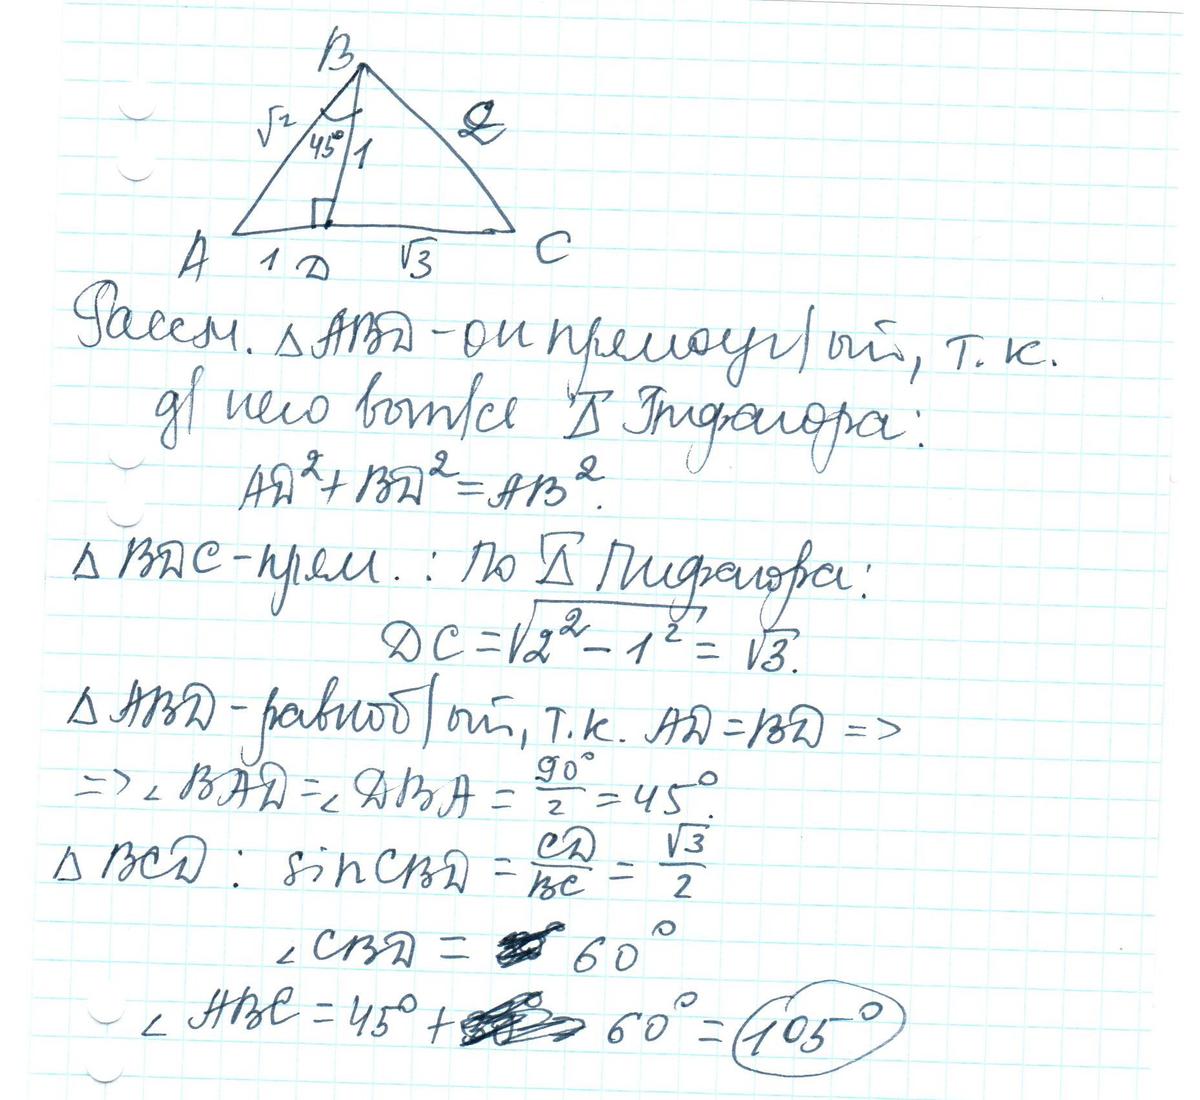 B
√2
2
45°
1
A
1
D
√3
C
Рассм. △ABD - он прямоуг/ый, т.к.
д/ него вып/ся T Пифагора:
AD²+BD²=AB².
△BDC-прям.: По T Пифагора:
DC=√2²-1²=√3.
△ABD-равноб/ый, т.к. AD=BD =>
=>∠BAD=∠DBA=90°/2=45°.
△BCD: sinCBD=CD/BC=√3/2
∠CBD= 60°
∠ABC=45°+ 60°=105°